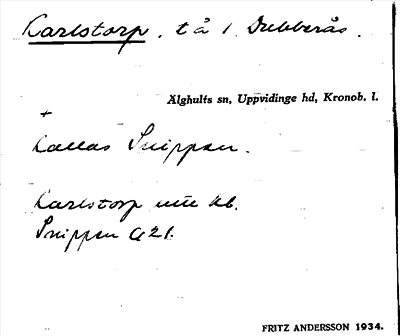 Karlstorp, tå 1 Dubberås.
Älghults sn, Uppvidinge hd, Kronob. l.
+
Kallas Snippen.
Karlstorp
Snippen a 21.
FRITZ ANDERSSON 1934.